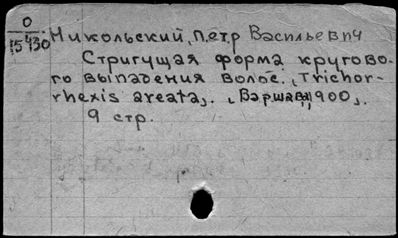 0
15430
Никольский, Петр Васильевич
Стригущая форма кругово-
го выпадения волос. „Trichor-
rhexis areata„. „Варшава, 1900„.
9 стр.